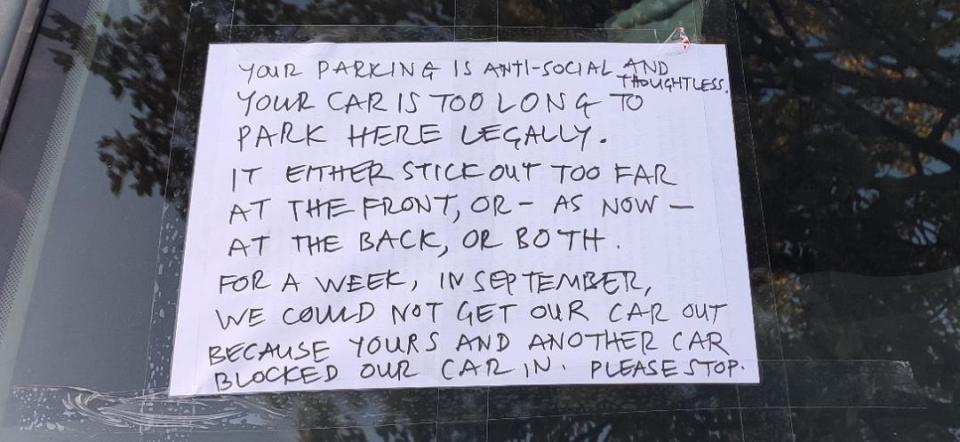 YOUR PARKING IS ANTI-SOCIAL AND
THOUGHTLESS.
YOUR CAR IS TOO LONG TO
PARK HERE LEGALLY.
IT EITHER STICK OUT TOO FAR
AT THE FRONT, OR - AS NOW -
AT THE BACK, OR BOTH.
FOR A WEEK, IN SEPTEMBER,
WE COULD NOT GET OUR CAR OUT
BECAUSE YOURS AND ANOTHER CAR
BLOCKED OUR CAR IN. PLEASE STOP.